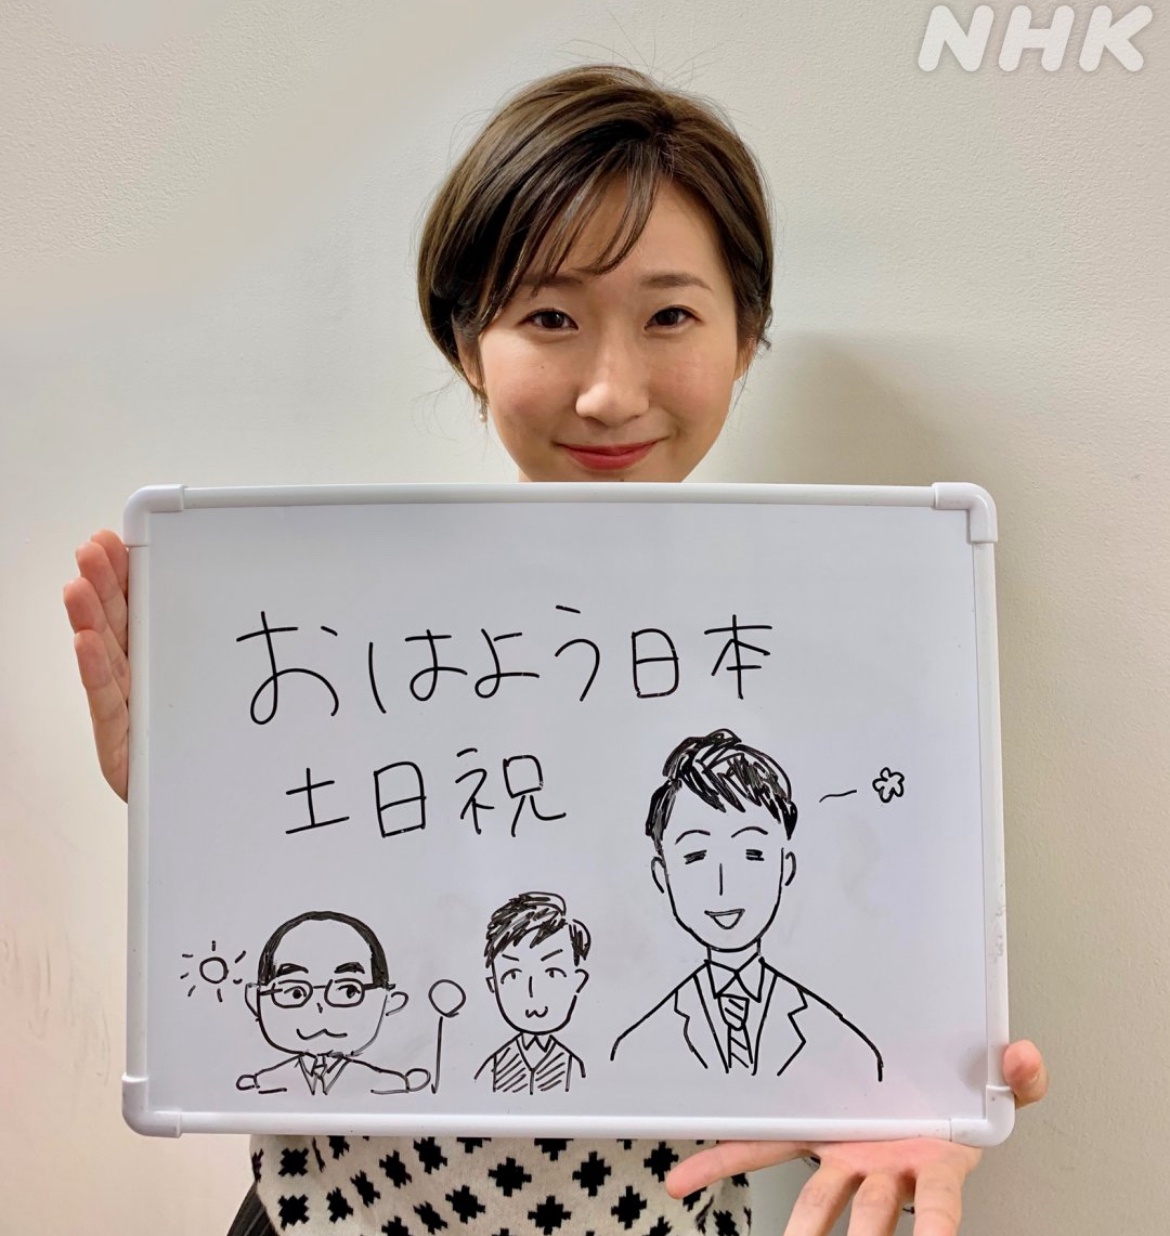 NHK
おはよう日本
土日祝